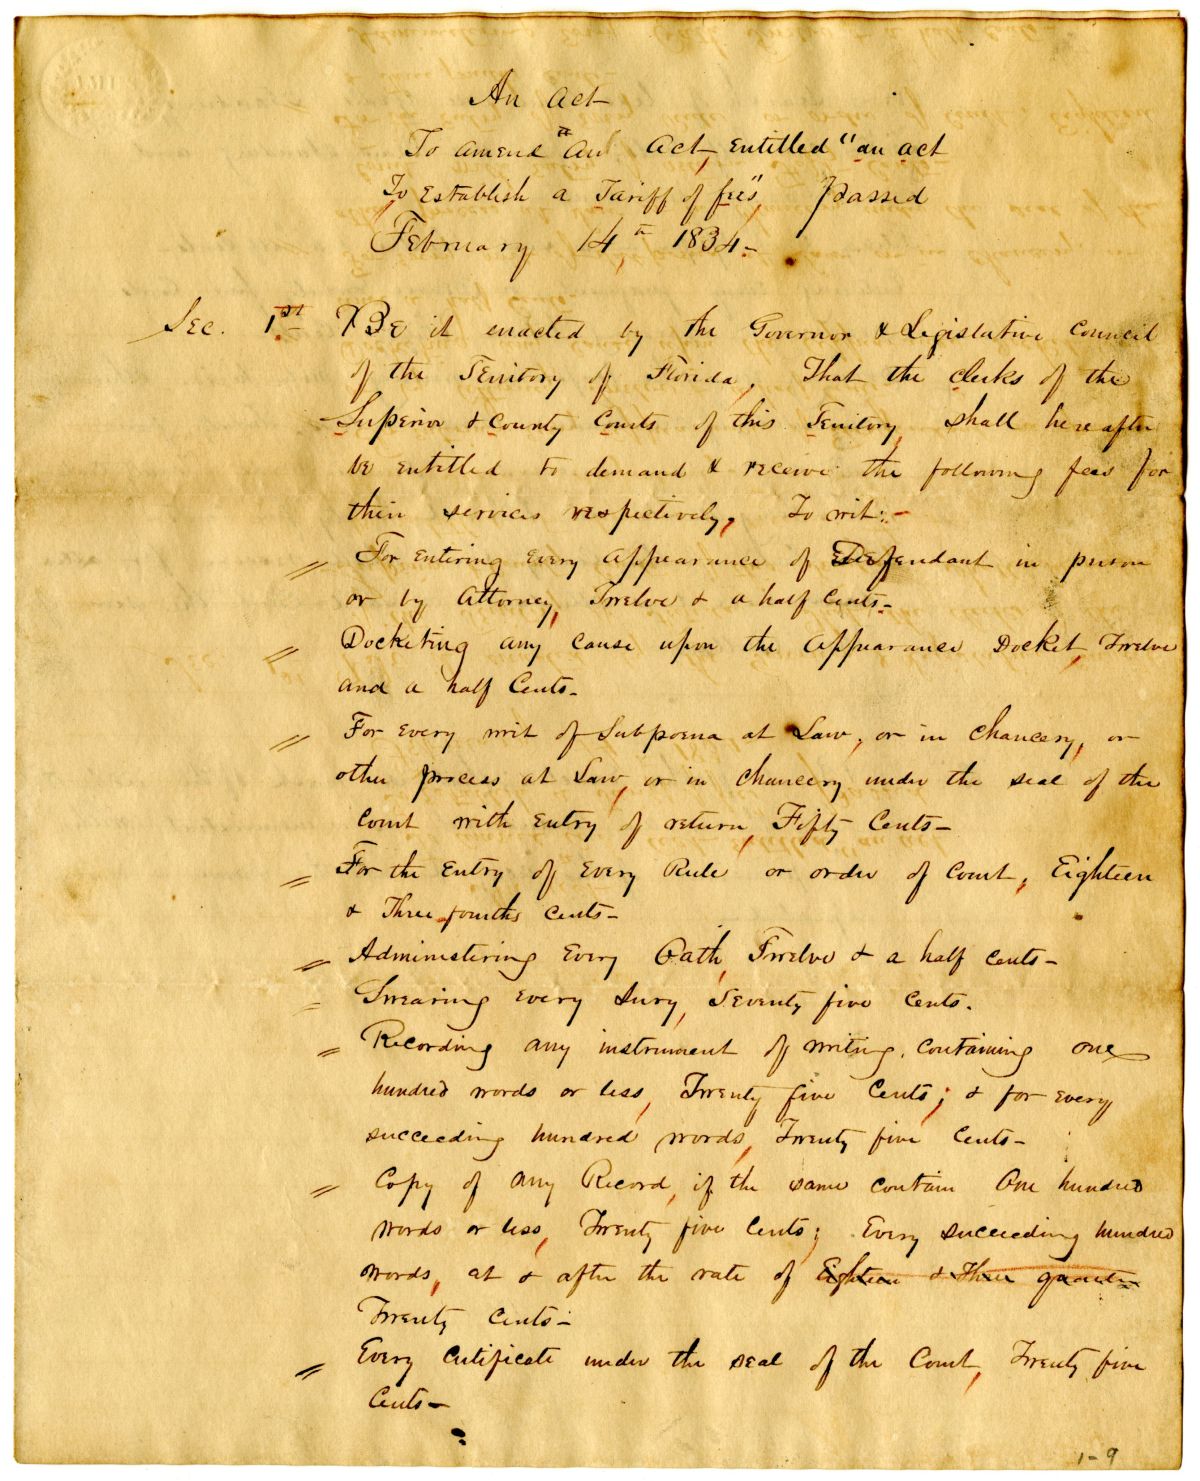 An act
To amend "an act, entitled "an act
To Establish a Tariff of fees", passed
February 14th, 1834-
Sec. 1st Be it enacted by the Governor & Legislative Council
of the Territory of Florida, That the clerks of the
Superior & County Courts of this Territory, shall here after
be entitled to demand & receive the following fees for
their services respectively, To wit:-
" For entering Every appearance of Defendant in person
or by Attorney, Twelve & a half Cents-
" Docketing any cause upon the appearance Docket, Twelve
and a half Cents-
" For Every writ of Subpoena at Law, or in Chancery, or
other process at Law, or in Chancery under the seal of the
Court with Entry of return, Fifty Cents-
" For the Entry of Every Rule or order of Court, Eighteen
& Three fourths cents-
" Administering Every Oath, Twelve & a half cents-
" Swearing Every Jury, Seventy five Cents.
" Recording any instrument of writing, containing one
hundred words or less, Twenty five Cents; & for every
succeeding hundred words, Twenty five Cents-
" Copy of any Record, if the same contain One hundred
words or less, Twenty five Cents; Every succeeding hundred
words, at & after the rate of Eighteen & Three quarter
Twenty Cents-
" Every Certificate under the seal of the Court, Twenty five
Cents-
1-9